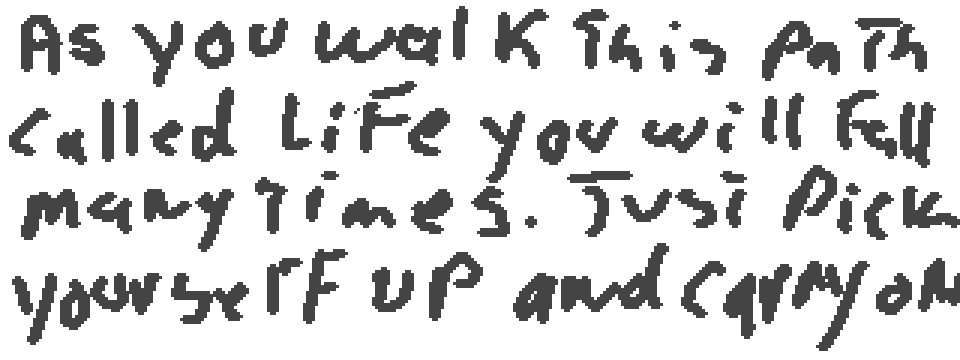 As you walk this path
called Life you will fall
many times. Just Pick
yourself up and carry on